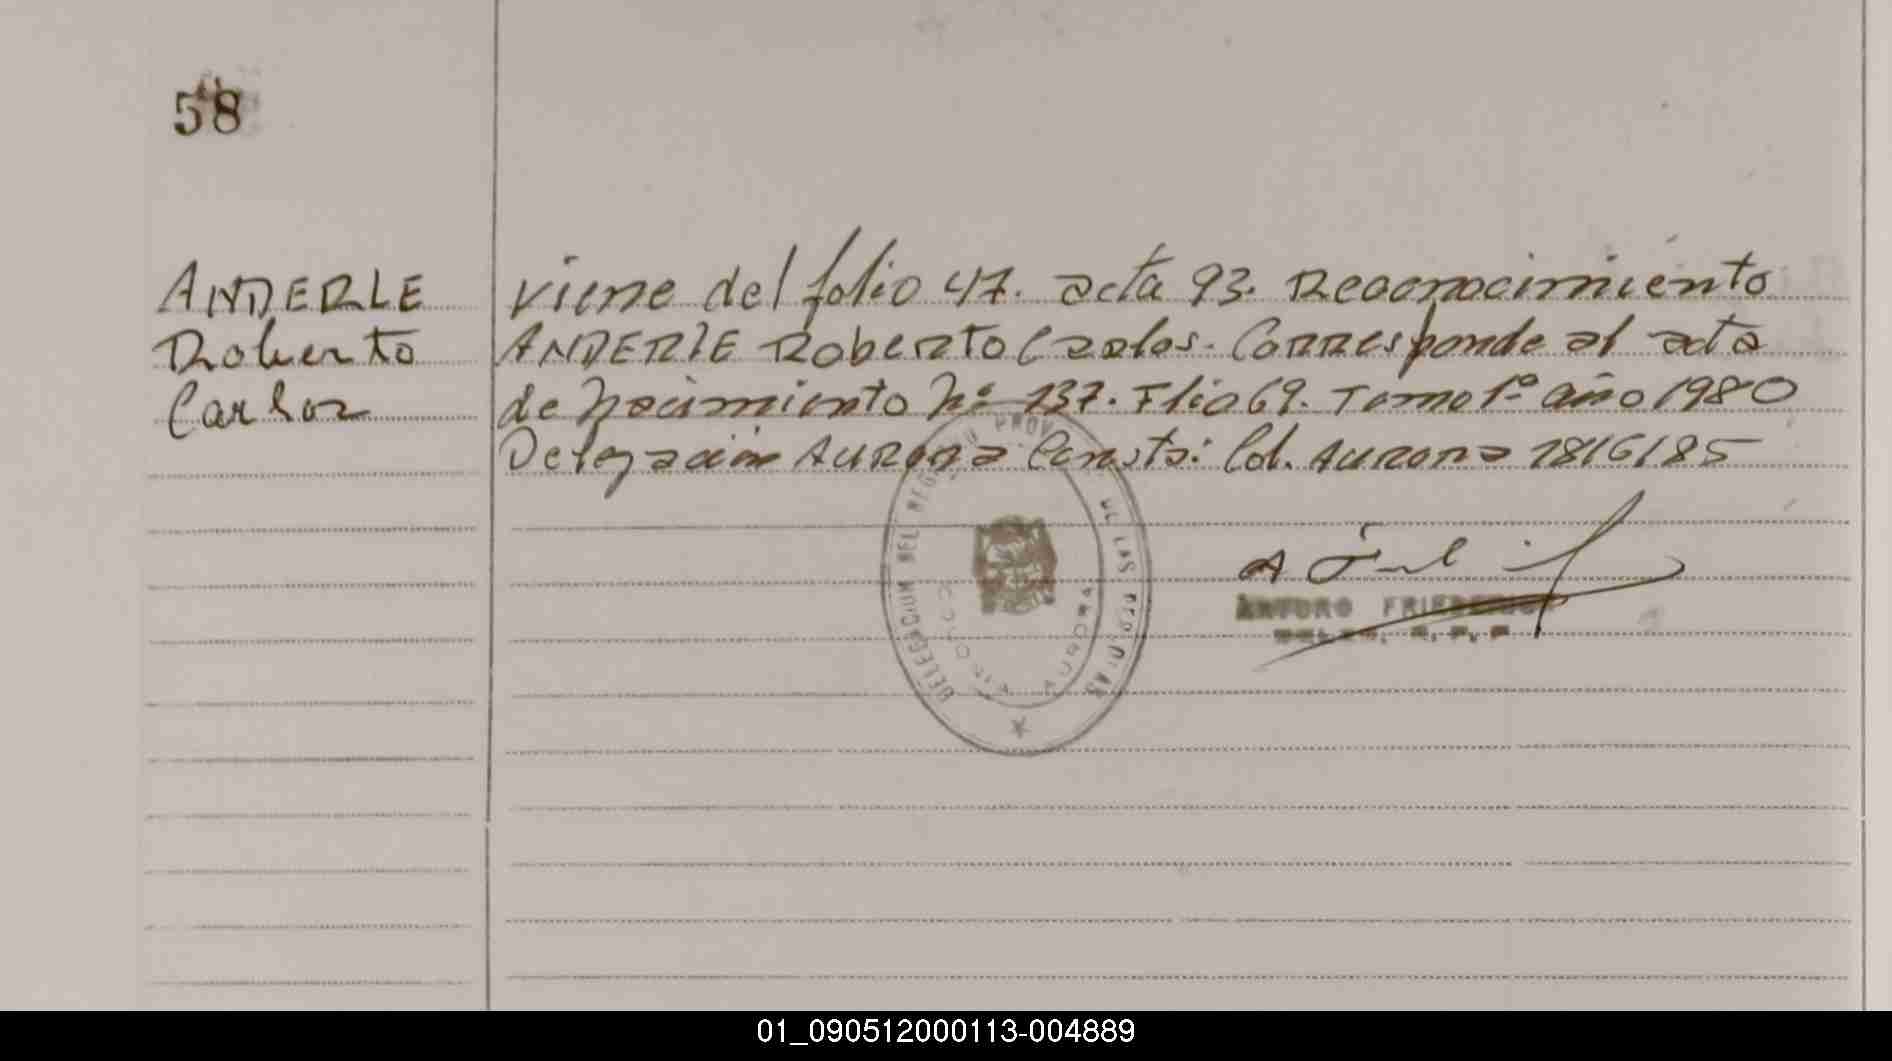 58
ANDERLE
Roberto
Carlos
Viene del folio 47. acta 93. Reconocimiento
ANDERLE Roberto Carlos. Corresponde al acta
de Nacimiento Nº 137. Flio 69. Tomo 1º año 1980
Delegación Aurora Consta: Col. Aurora 18/6/85
DELEGACION DEL REGISTRO PROV. DE LAS PERSONAS
AURORA
ARTURO
01_090512000113-004889